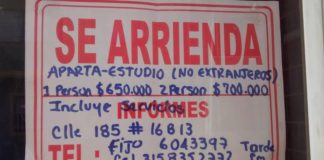 SE ARRIENDA
APARTA-ESTUDIO (NO EXTRANJEROS)
1 Person $650.000 2 Person $700.000
Incluye Servicios
INFORMES
Clle 185 # 16B13
Fijo 6043397 Tarde
TEL:
Cel 3158352332